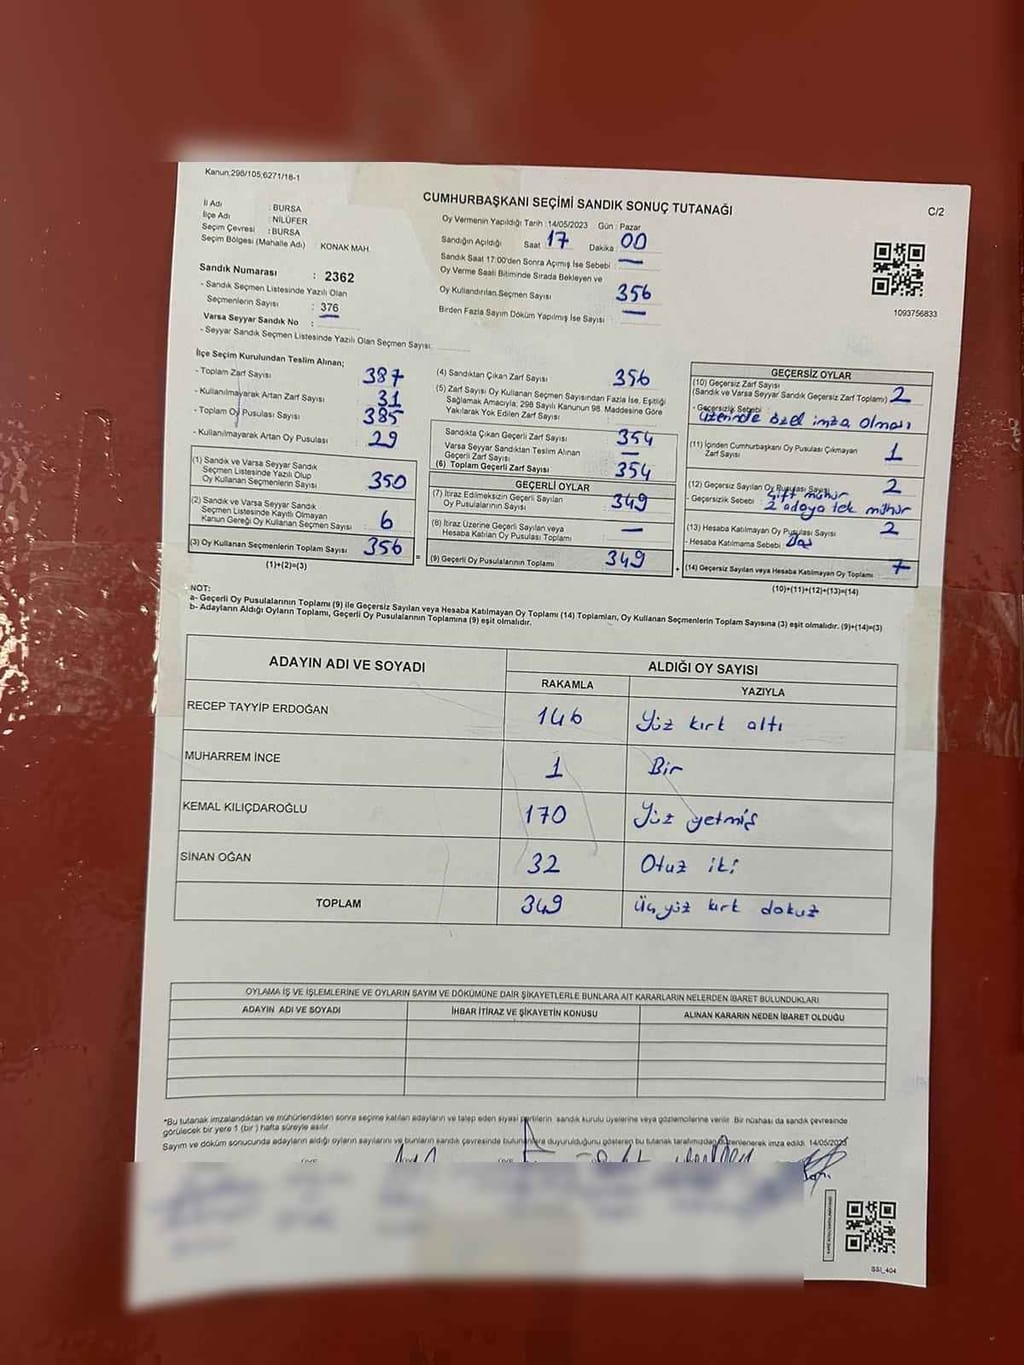 Kanun,298/105,6271/18-1
CUMHURBAŞKANI SEÇİMİ SANDIK SONUÇ TUTANAĞI
C/2
İl Adı : BURSA
İlçe Adı : NİLÜFER
Seçim Çevresi : BURSA
Seçim Bölgesi (Mahalle Adı) : KONAK MAH.
Sandık Numarası : 2362
- Sandık Seçmen Listesinde Yazılı Olan
Seçmenlerin Sayısı : 376
Varsa Seyyar Sandık No :
- Seyyar Sandık Seçmen Listesinde Yazılı Olan Seçmen Sayısı:
Oy Vermenin Yapıldığı Tarih : 14/05/2023 Gün : Pazar
Sandığın Açıldığı Saat 17 Dakika 00
Sandık Saat 17:00'den Sonra Açmış İse Sebebi : —
Oy Verme Saati Bitiminde Sırada Bekleyen ve
Oy Kullandırılan Seçmen Sayısı 356
Birden Fazla Sayım Döküm Yapılmış İse Sayısı : —
1093756833
İlçe Seçim Kurulundan Teslim Alınan;
- Toplam Zarf Sayısı 387
- Kullanılmayarak Artan Zarf Sayısı 31
- Toplam Oy Pusulası Sayısı 385
- Kullanılmayarak Artan Oy Pusulası 29
(1) Sandık ve Varsa Seyyar Sandık
Seçmen Listesinde Yazılı Olup
Oy Kullanan Seçmenlerin Sayısı 350
(2) Sandık ve Varsa Seyyar Sandık
Seçmen Listesinde Kayıtlı Olmayan
Kanun Gereği Oy Kullanan Seçmen Sayısı 6
(3) Oy Kullanan Seçmenlerin Toplam Sayısı 356
(1)+(2)=(3)
(4) Sandıktan Çıkan Zarf Sayısı 356
(5) Zarf Sayısı Oy Kullanan Seçmen Sayısından Fazla İse, Eşitliği
Sağlamak Amacıyla; 298 Sayılı Kanunun 98. Maddesine Göre
Yakılarak Yok Edilen Zarf Sayısı :
Sandıkta Çıkan Geçerli Zarf Sayısı 354
Varsa Seyyar Sandıktan Teslim Alınan
Geçerli Zarf Sayısı —
(6) Toplam Geçerli Zarf Sayısı 354
GEÇERLİ OYLAR
(7) İtiraz Edilmeksizin Geçerli Sayılan
Oy Pusulalarının Sayısı 349
(8) İtiraz Üzerine Geçerli Sayılan veya
Hesaba Katılan Oy Pusulası Toplamı —
= (9) Geçerli Oy Pusulalarının Toplamı 349
GEÇERSİZ OYLAR
(10) Geçersiz Zarf Sayısı
(Sandık ve Varsa Seyyar Sandık Geçersiz Zarf Toplamı) 2
- Geçersizlik Sebebi
üzerinde özel imza olması
(11) İçinden Cumhurbaşkanı Oy Pusulası Çıkmayan
Zarf Sayısı 1
(12) Geçersiz Sayılan Oy Pusulası Sayısı 2
- Geçersizlik Sebebi : Çift mühür
2 adaya tek mühür
(13) Hesaba Katılmayan Oy Pusulası Sayısı 2
- Hesaba Katılmama Sebebi :
+ (14) Geçersiz Sayılan veya Hesaba Katılmayan Oy Toplamı 7
(10)+(11)+(12)+(13)=(14)
NOT:
a- Geçerli Oy Pusulalarının Toplamı (9) ile Geçersiz Sayılan veya Hesaba Katılmayan Oy Toplamı (14) Toplamları, Oy Kullanan Seçmenlerin Toplam Sayısına (3) eşit olmalıdır. (9)+(14)=(3)
b- Adayların Aldığı Oyların Toplamı, Geçerli Oy Pusulalarının Toplamına (9) eşit olmalıdır.
ADAYIN ADI VE SOYADI ALDIĞI OY SAYISI
RAKAMLA YAZIYLA
RECEP TAYYİP ERDOĞAN 146 Yüz kırk altı
MUHARREM İNCE 1 Bir
KEMAL KILIÇDAROĞLU 170 Yüz yetmiş
SİNAN OĞAN 32 Otuz iki
TOPLAM 349 Üçyüz kırk dokuz
OYLAMA İŞ VE İŞLEMLERİNE VE OYLARIN SAYIM VE DÖKÜMÜNE DAİR ŞİKAYETLERLE BUNLARA AİT KARARLARIN NELERDEN İBARET BULUNDUKLARI
ADAYIN ADI VE SOYADI İHBAR İTİRAZ VE ŞİKAYETİN KONUSU ALINAN KARARIN NEDEN İBARET OLDUĞU
*Bu tutanak imzalandıktan ve mühürlendikten sonra seçime katılan adayların ve talep eden siyasi partilerin sandık kurulu üyelerine veya gözlemcilerine verilir. Bir nüshası da sandık çevresinde
görülecek bir yere 1 (bir) hafta süreyle asılır.
Sayım ve döküm sonucunda adayların aldığı oyların sayılarını ve bunların sandık çevresinde bulunanlara duyurulduğunu gösteren bu tutanak tarafımızdan düzenlenerek imza edildi. 14/05/2023
SSI_404